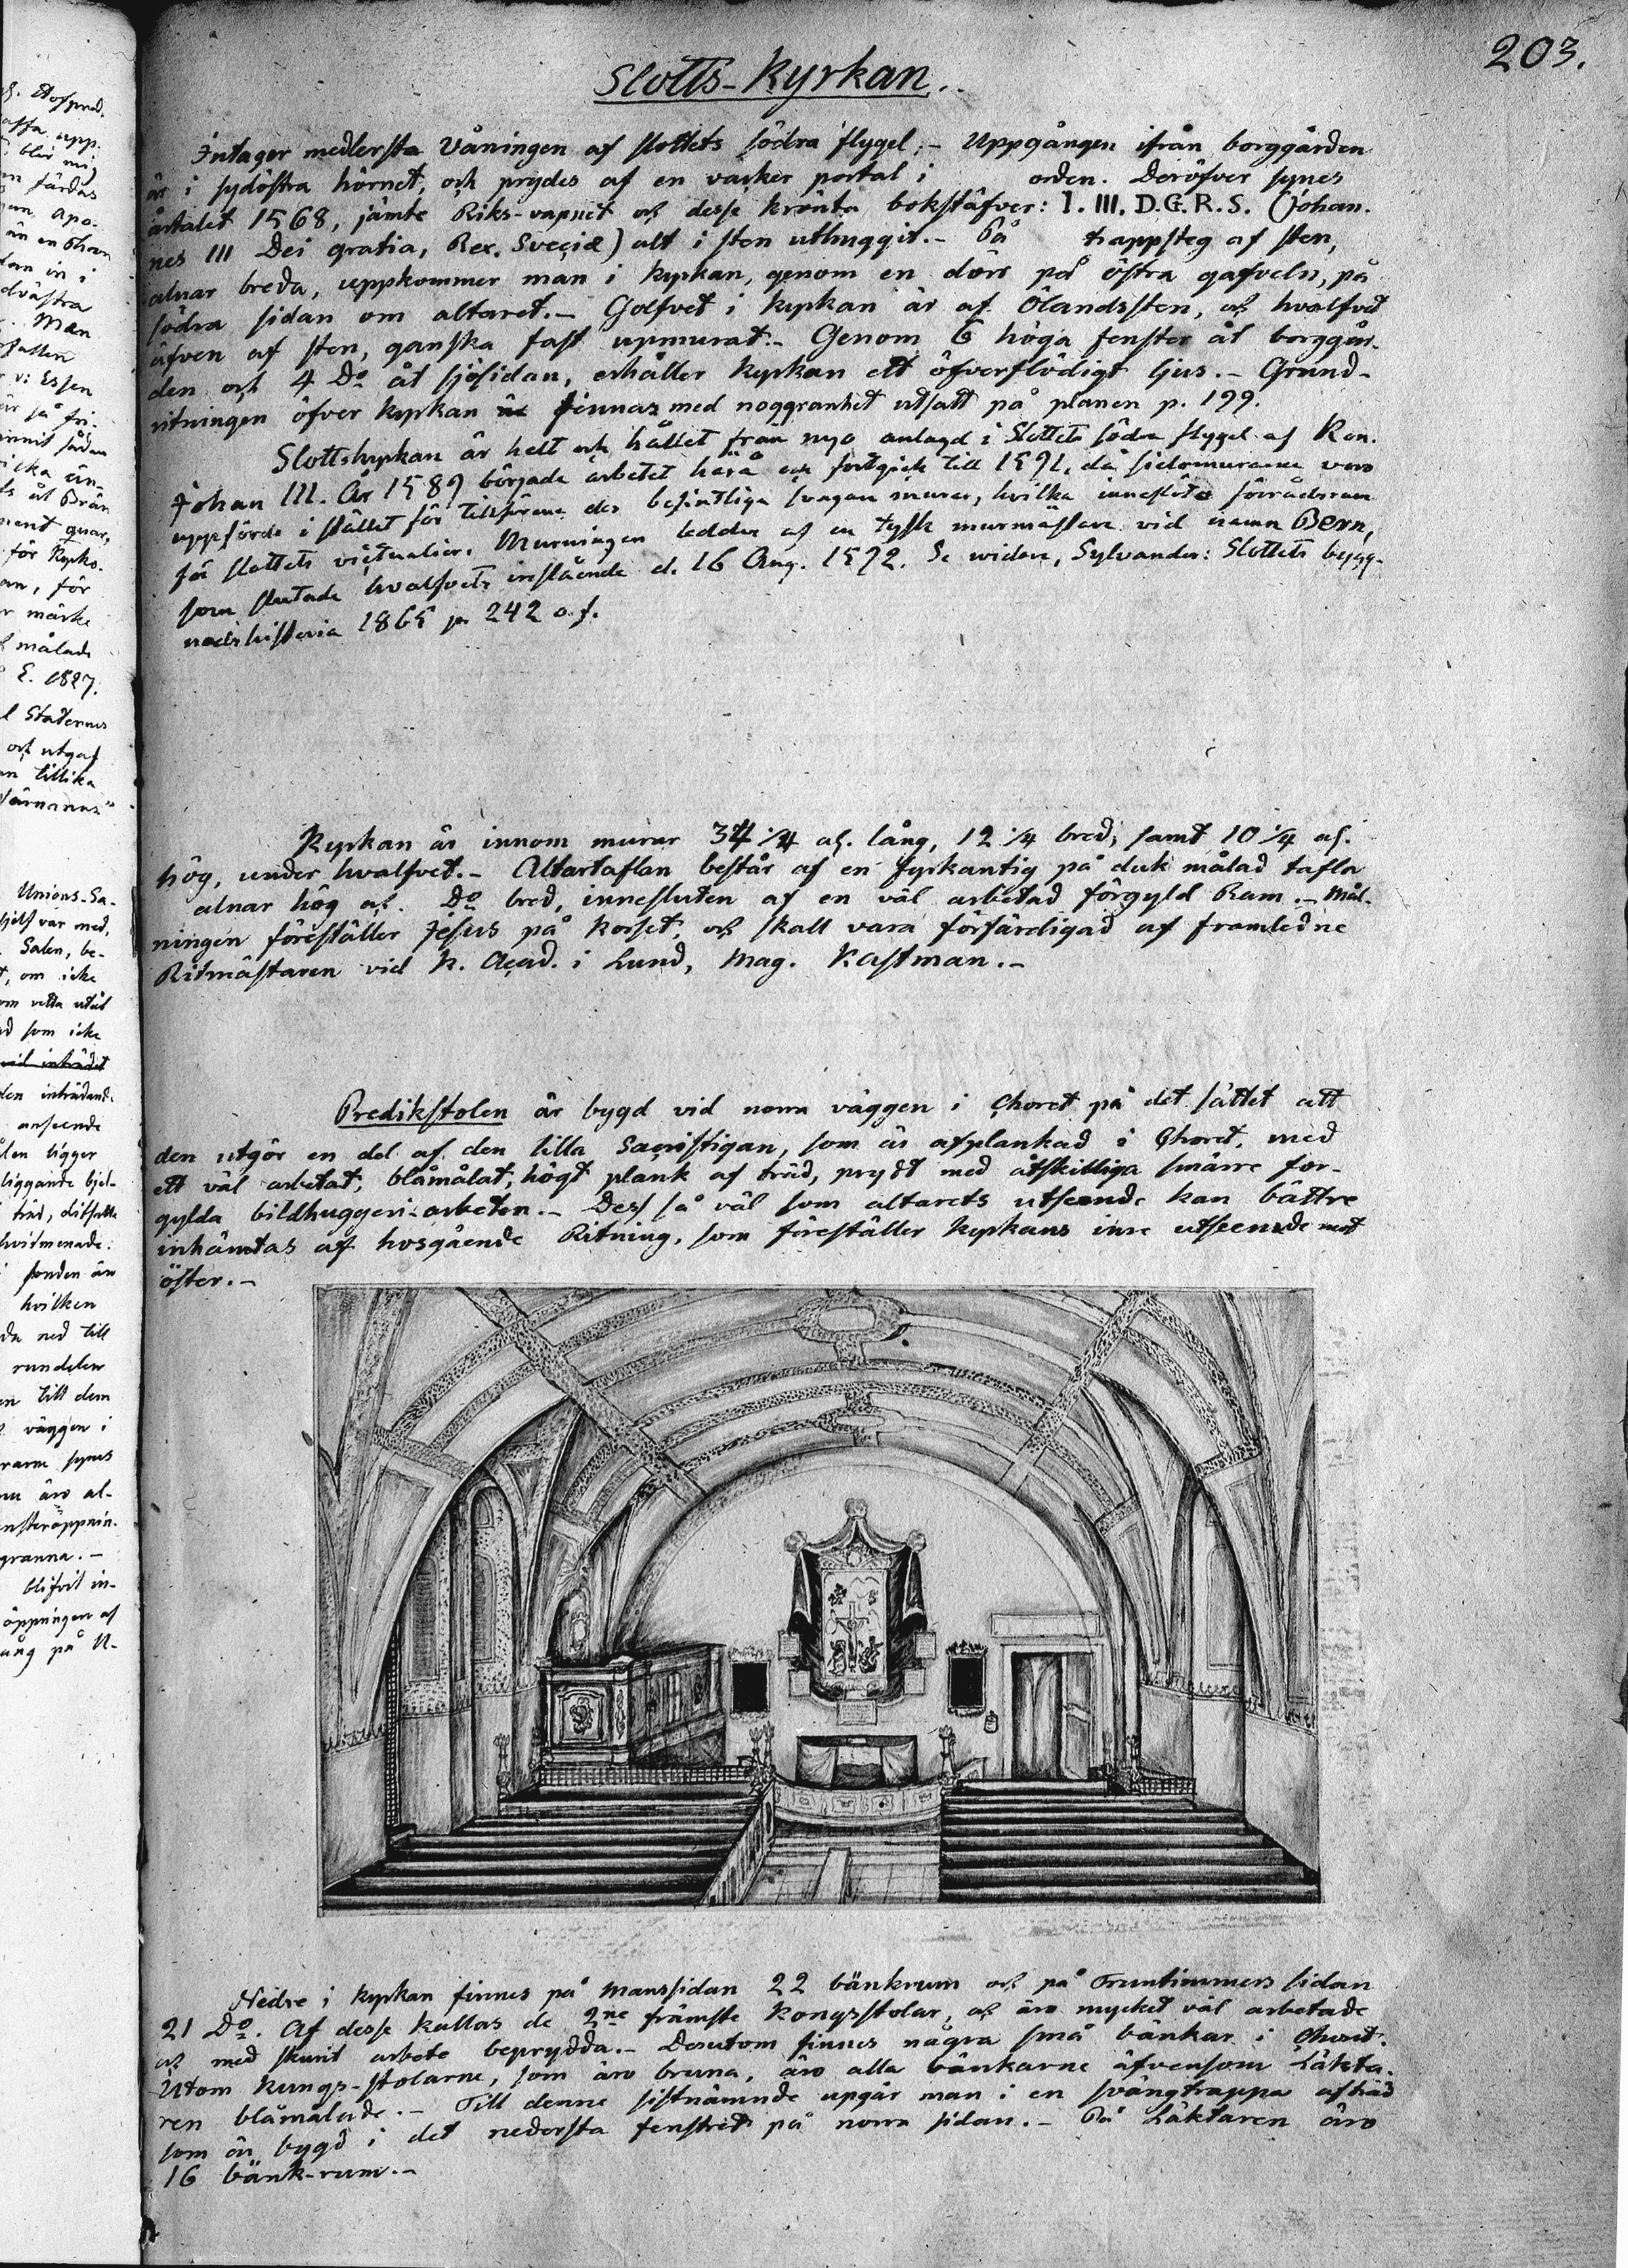 203.
Slotts-Kyrkan.
Intager medlersta Våningen af slottets södra flygel.- Uppgången ifrån borggården
är i sydöstra hörnet, och prydes af en vacker portal i orden. Deröfver synes
årtalet 1568, jämte Riks-vapnet och desse krönta bokstäfver: I. III. D.G.R.S. (Johan.
nes III Dei gratia, Rex. Sveciæ) alt i sten uthuggit.- På trappsteg af sten,
alnar breda, uppkommer man i kyrkan, genom en dörr på östra gafveln, på
södra sidan om altaret.- Golfvet i kyrkan är af Ölandssten, och hvalfvet
äfven af sten, ganska fast upmurat.- Genom 6 höga fenster åt borggår-
den och 4 Do åt sjösidan, erhåller kyrkan ett öfverflödigt ljus.- Grund-
ritningen öfver kyrkan är finnas med noggranhet utsatt på planen p. 199.
Slottskyrkan är helt och hållet från nyo anlagd i Slottets södra flygel af Kon.
Johan III. År 1589 började arbetet härå och fortgick till 1591, då sidomurarne voro
uppförde i stället för tillförene der befintliga svagare murar, hvilka inneslöto förrådsrum
för slottets victualier. Murningen leddes af en tysk murmästare vid namn Bern,
som slutade hvalfvets inslående d. 16 Aug. 1592. Se widare, Sylvander: Slottets bygg-
nadshistoria 1865 p. 242 o.f.
Kyrkan är innom murar 34 1/4 al. lång, 12 1/4 bred, samt 10 1/4 al.
hög, under hvalfvet.- Altartaflan består af en fyrkantig på duk målad tafla
alnar hög och Do bred, innesluten af en väl arbetad förgyld Ram.- Mål-
ningen föreställer Jesus på korset, och skall vara förfärdigad af framledne
Ritmästaren vid K. Acad. i Lund, Mag. Kastman.-
Predikstolen är bygd vid norra väggen i Choret på det sättet att
den utgör en del af den lilla Sacristigan, som är afplankad i Choret, med
ett väl arbetat, blåmålat, högt plank af träd, prydt med åtskilliga smärre för-
gylda bildhuggeri-arbeten.- Dess så väl som altarets utseende kan bättre
inhämtas af hosgående Ritning, som föreställer kyrkans inre utseende mot
öster.-
Nedre i kyrkan finnes på manssidan 22 bänkrum och på Fruntimmers sidan
21 Do. Af desse kallas de 2ne främste Kongsstolar, och äro mycket väl arbetade
och med skurit arbete beprydda.- Desutom finnes några små bänkar i Choret.
Utom Kungs-stolarne, som äro bruna, äro alla bänkarne äfvensom Läkta-
ren blåmålade.- Till denne sistnämnde upgår man i en svängtrappa af träd
som är bygd i det nedersta fenstret på norra sidan.- På Läktaren äro
16 bänk-rum.-